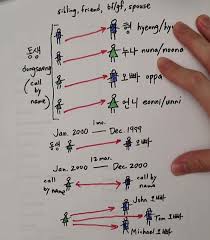 sibling, friend, bf/gf, spouse
형 hyeong/hy
동생
누나 nuna/noona
dongsaeng
오빠 oppa
(call by name)
언니 eonni/unni
1 mo.
Jan. 2000 Dec. 1999
동생 오빠
12 mo.
Jan. 2000 Dec. 2000
call by name call by name
John 오빠
Tom 오빠
Michael 오빠